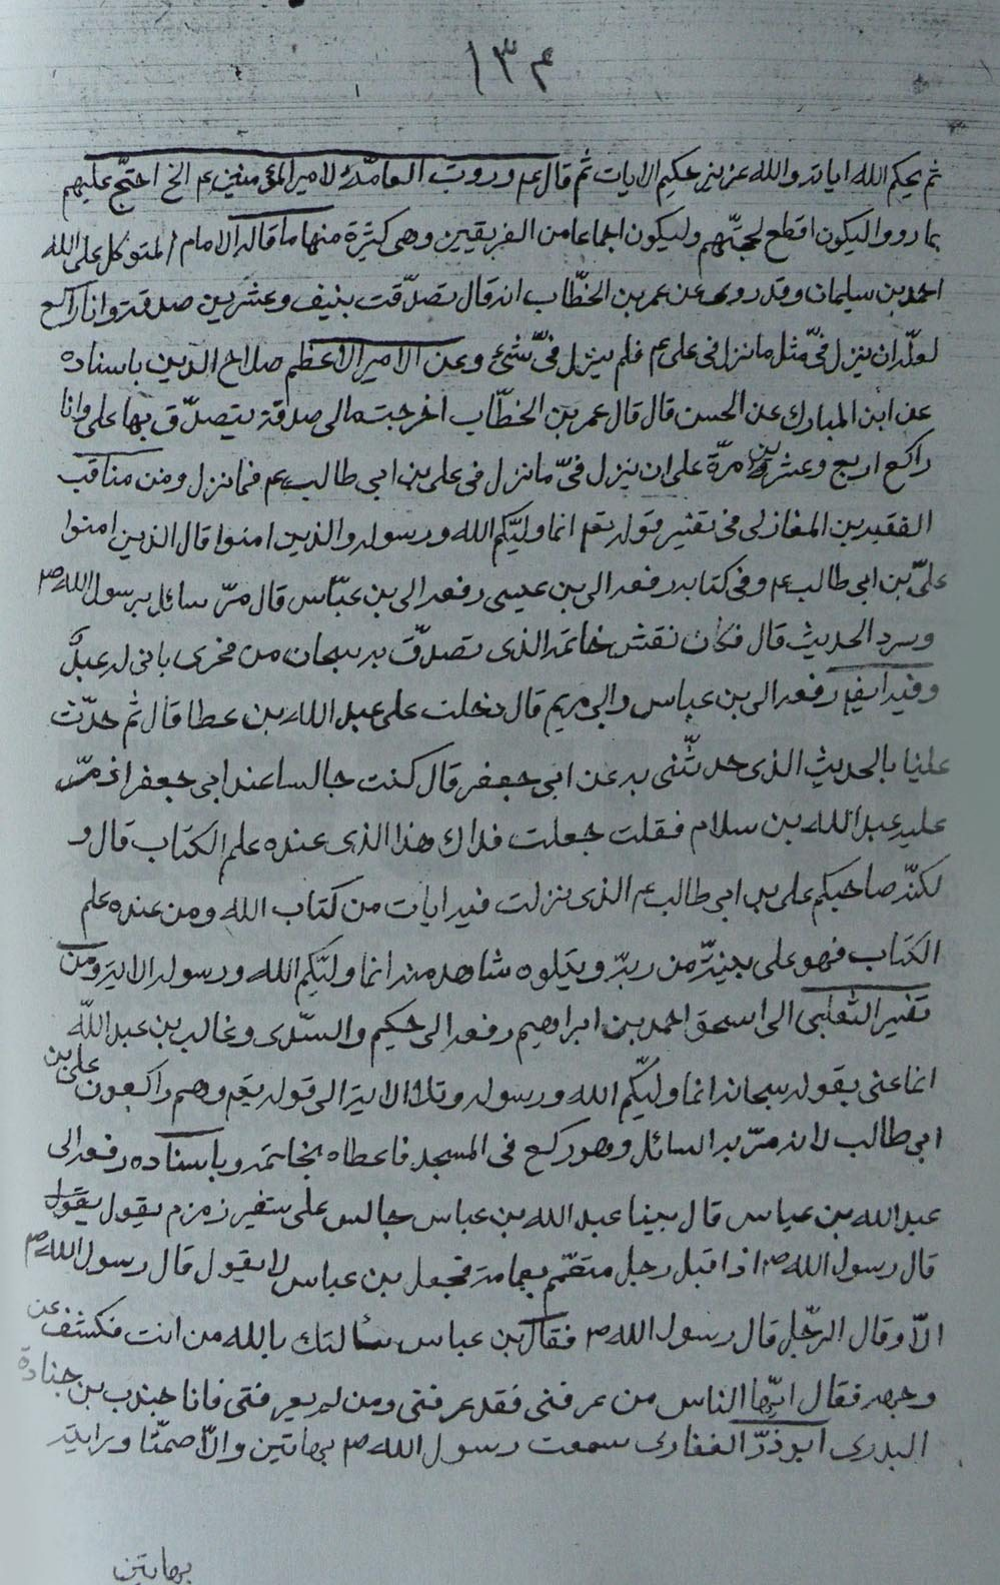 ١٣٤
ثم يحكم الله اياته والله عزيز حكيم الايات ثم قال عم وروت العامّة لامير المؤمنين عم الخ احتجّ عليهم
بما رووا ليكون اقطع لحجتّهم وليكون اجماعا من الفريقين وهى كثيرة منها ما قاله الامام المتوكل على الله
احمد بن سليمان وقد روى عن عمر بن الخطّاب انه قال تصدّقت بنيف وعشرين صدقة وانا راكع
لعلّه ان ينزل فىّ مثل ما نزل فى على عم فلم ينزل فىّ شئ وعن الامير الاعظم صلاح الدين باسناده
عن ابن المبارك عن الحسن قال قال عمر بن الخطّاب اخرجت مالى صدقة يتصدّق بها على وانا
راكع اربع وعشرين مرّة على ان ينزل فىّ ما نزل فى على بن ابى طالب عم فما نزل ومن مناقب
الفقيه بن المغازلى فى تفسير قوله تعم انما وليّكم الله ورسوله والذين امنوا قال الذين امنوا
علىّ بن ابى طالب عم وفى كتابه رفعه الى بن عيسى رفعه الى بن عبّاس قال مرّ سائل برسول الله ص
وسرد الحديث قال فكان نقش خاتمه الذى تصدّق به سبحان من فخرى بانى له عبدٌ
وفيه ايضا رفعه الى بن عباس والى مريم قال دخلت على عبد الله بن عطا قال ثم حدّث
علينا بالحديث الذى حدثّنى به عن ابى جعفر قال كنت جالسا عند ابى جعفر اذ مرّ
عليه عبد الله بن سلام فقلت جعلت فداك هذا الذى عنده علم الكتاب قال و
لكنّه صاحبكم على بن ابى طالب عم الذى نزلت فيه ايات من كتاب الله ومن عنده علم
الكتاب فهو على بينةّ من ربّه ويتلوه شاهد منه انما وليّكم الله ورسوله الاية ومن
تفسير الثعلبى الى اسحق احمد بن ابراهيم رفعه الى حكيم والسّدى وغالب بن عبد اللّه
انما عنى بقوله سبحانه انما وليّكم الله ورسوله وتلا الاية الى قوله تعم وهم راكعون على بن
ابى طالب لانه مرّ به السائل وهو ركع فى المسجد فاعطاه بخاتمه وباسناده رفعه الى
عبد الله بن عباس قال بينا عبد الله بن عباس جالس على شفير زمزم يقول يقول
قال رسول الله ص اذ اقبل رجل متعمّم بعمامة فجعل بن عباس لا يقول قال رسول الله ص
الاّ وقال الرّجل قال رسول الله ص فقال بن عباس سألتك بالله من انت فكشف عن
وجهه فقال ايّها الناس من عرفنى فقد عرفنى ومن لم يعرفنى فانا جندب بن جنادة
البدرى ابو ذرّ الغفارى سمعت رسول الله ص بهاتين والاّ صمّتا ورايته
بهاتين